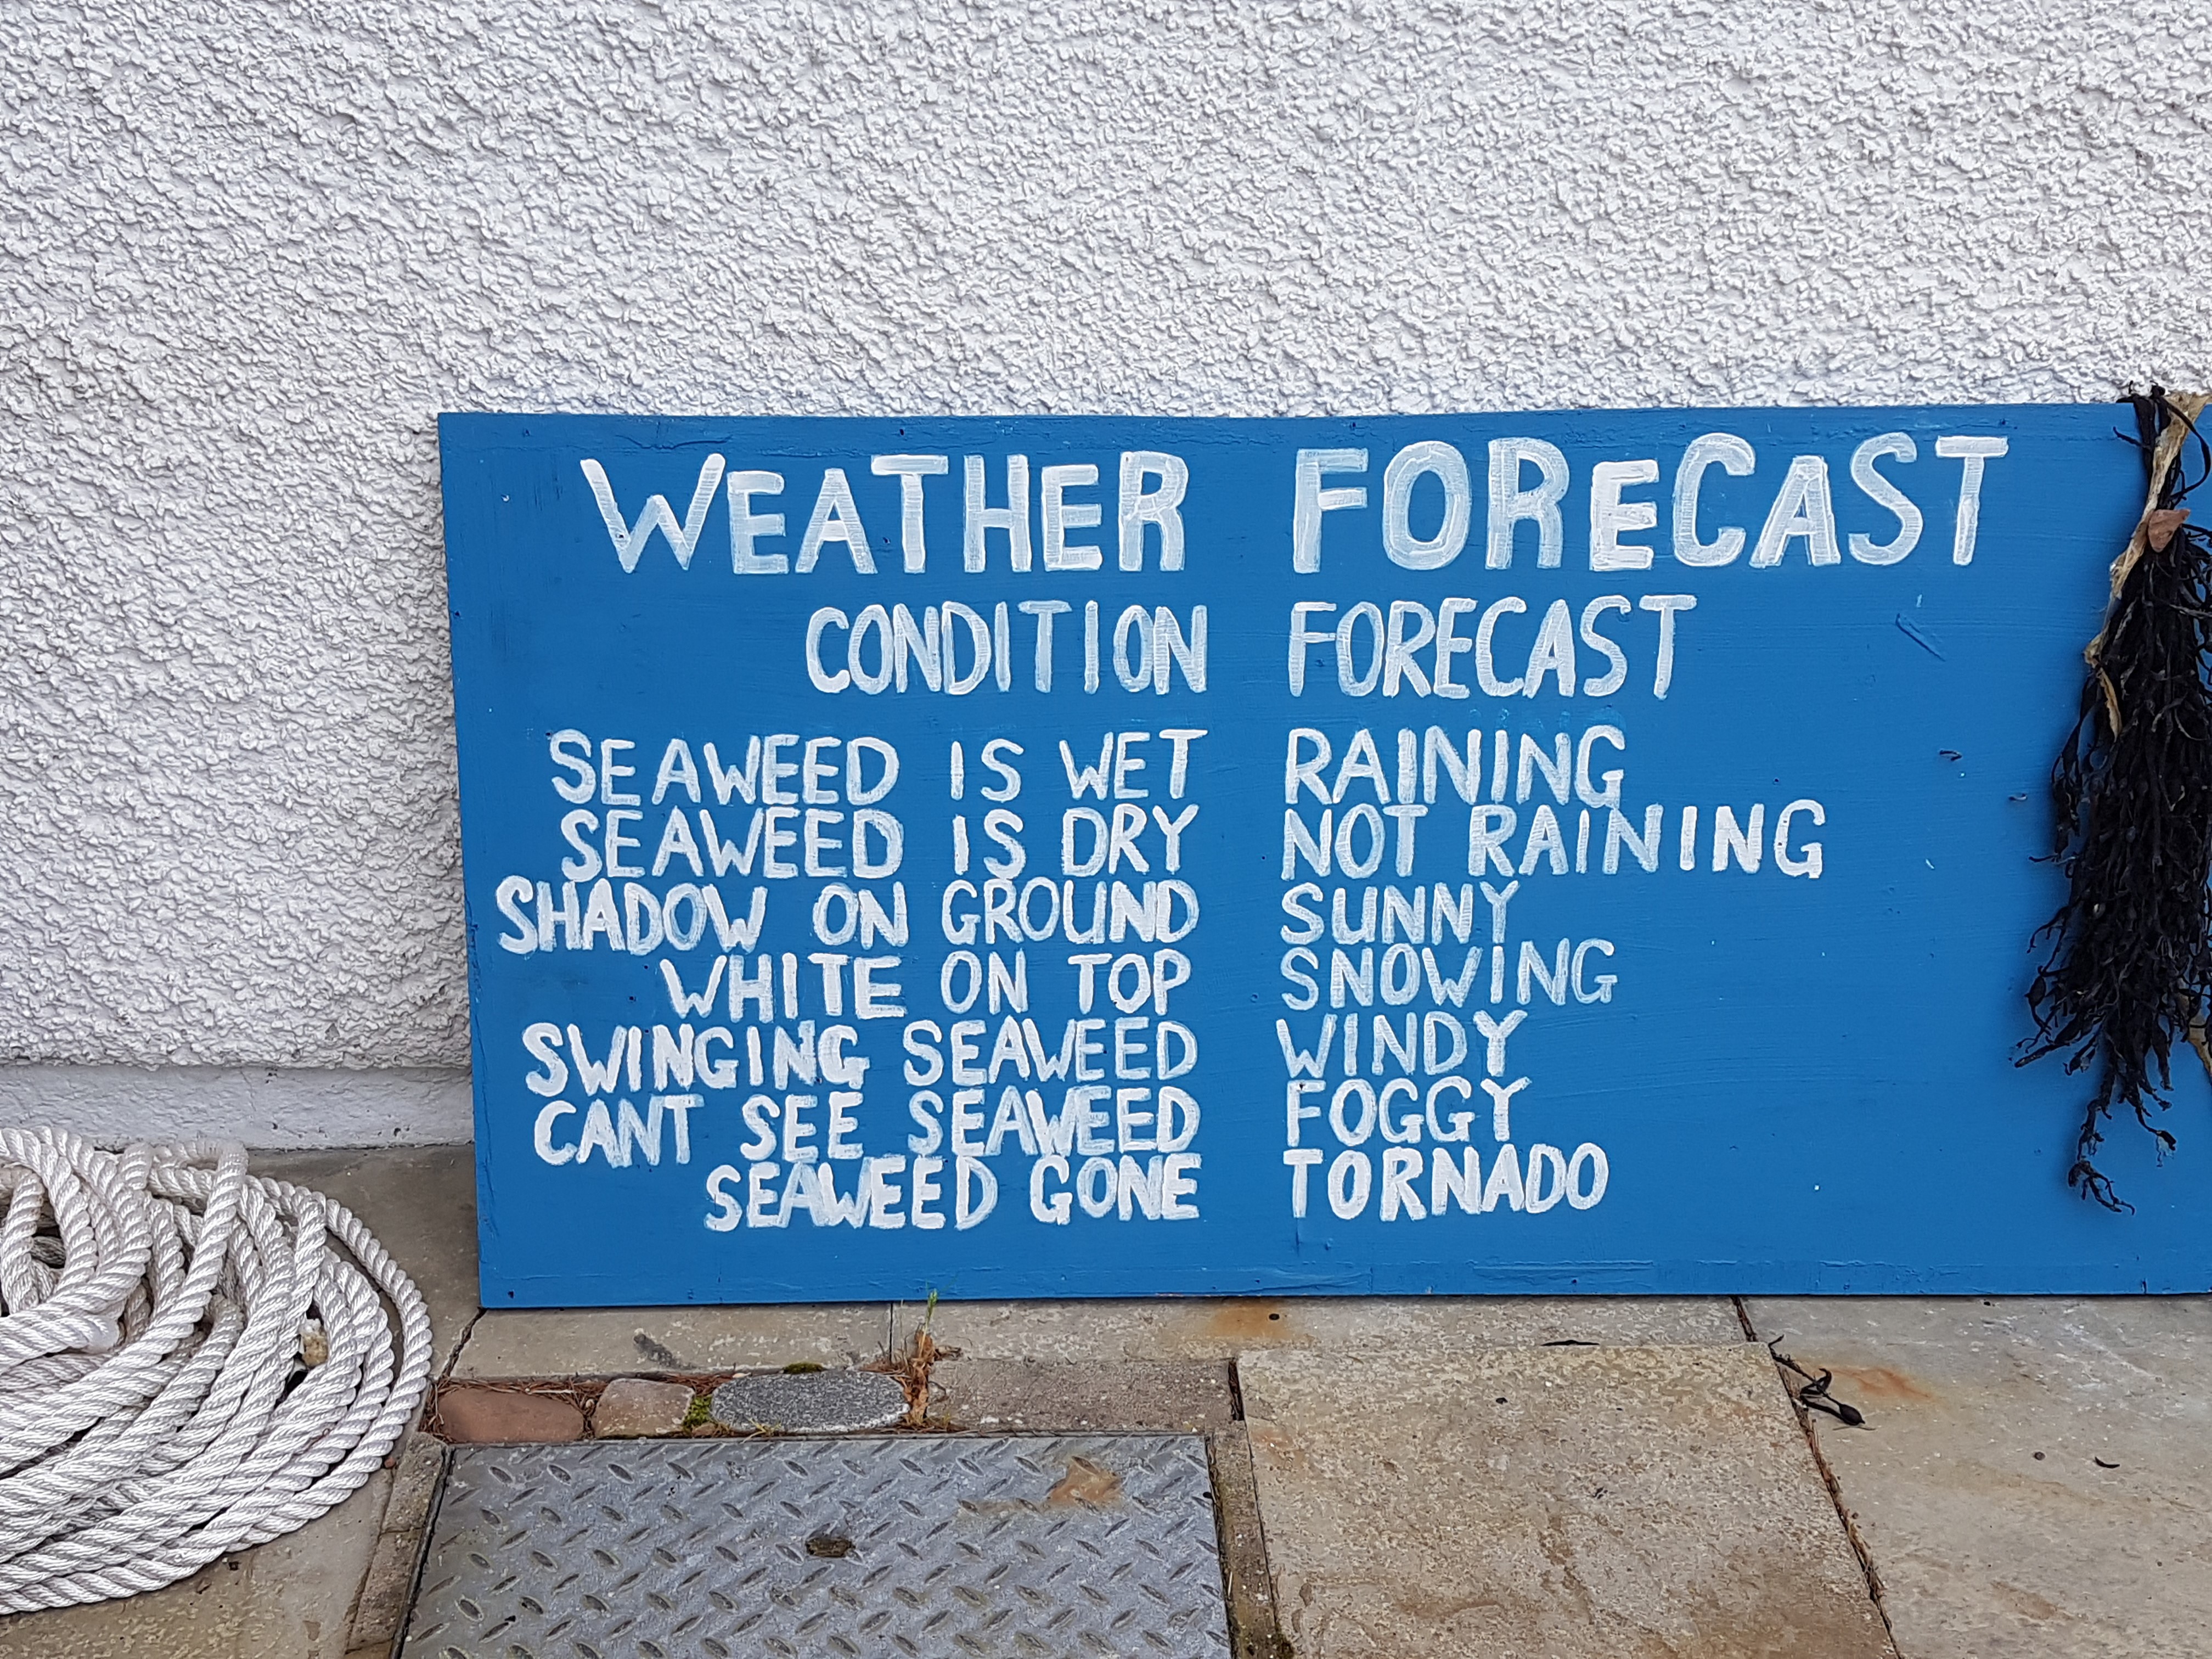 WEATHER FORECAST
CONDITION FORECAST
SEAWEED IS WET RAINING
SEAWEED IS DRY NOT RAINING
SHADOW ON GROUND SUNNY
WHITE ON TOP SNOWING
SWINGING SEAWEED WINDY
CANT SEE SEAWEED FOGGY
SEAWEED GONE TORNADO